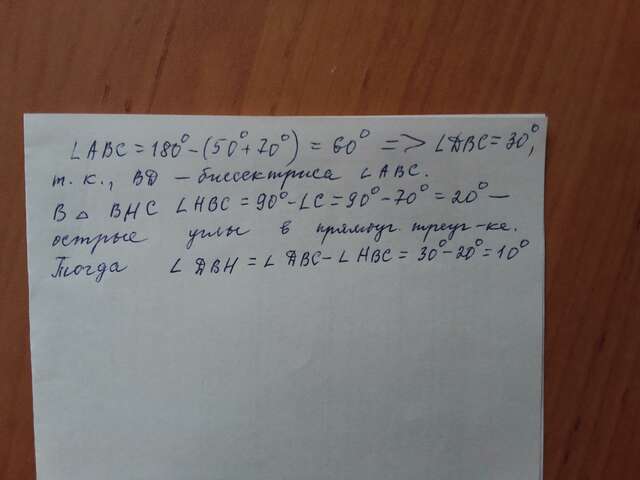 ∠ABC = 180° - (50° + 70°) = 60° => ∠DBC = 30°,
т. к., BD - биссектриса ∠ABC.
В △ BHC ∠HBC = 90° - ∠C = 90° - 70° = 20° -
острые углы в прямоуг. треуг-ке.
Тогда ∠DBH = ∠DBC - ∠HBC = 30° - 20° = 10°